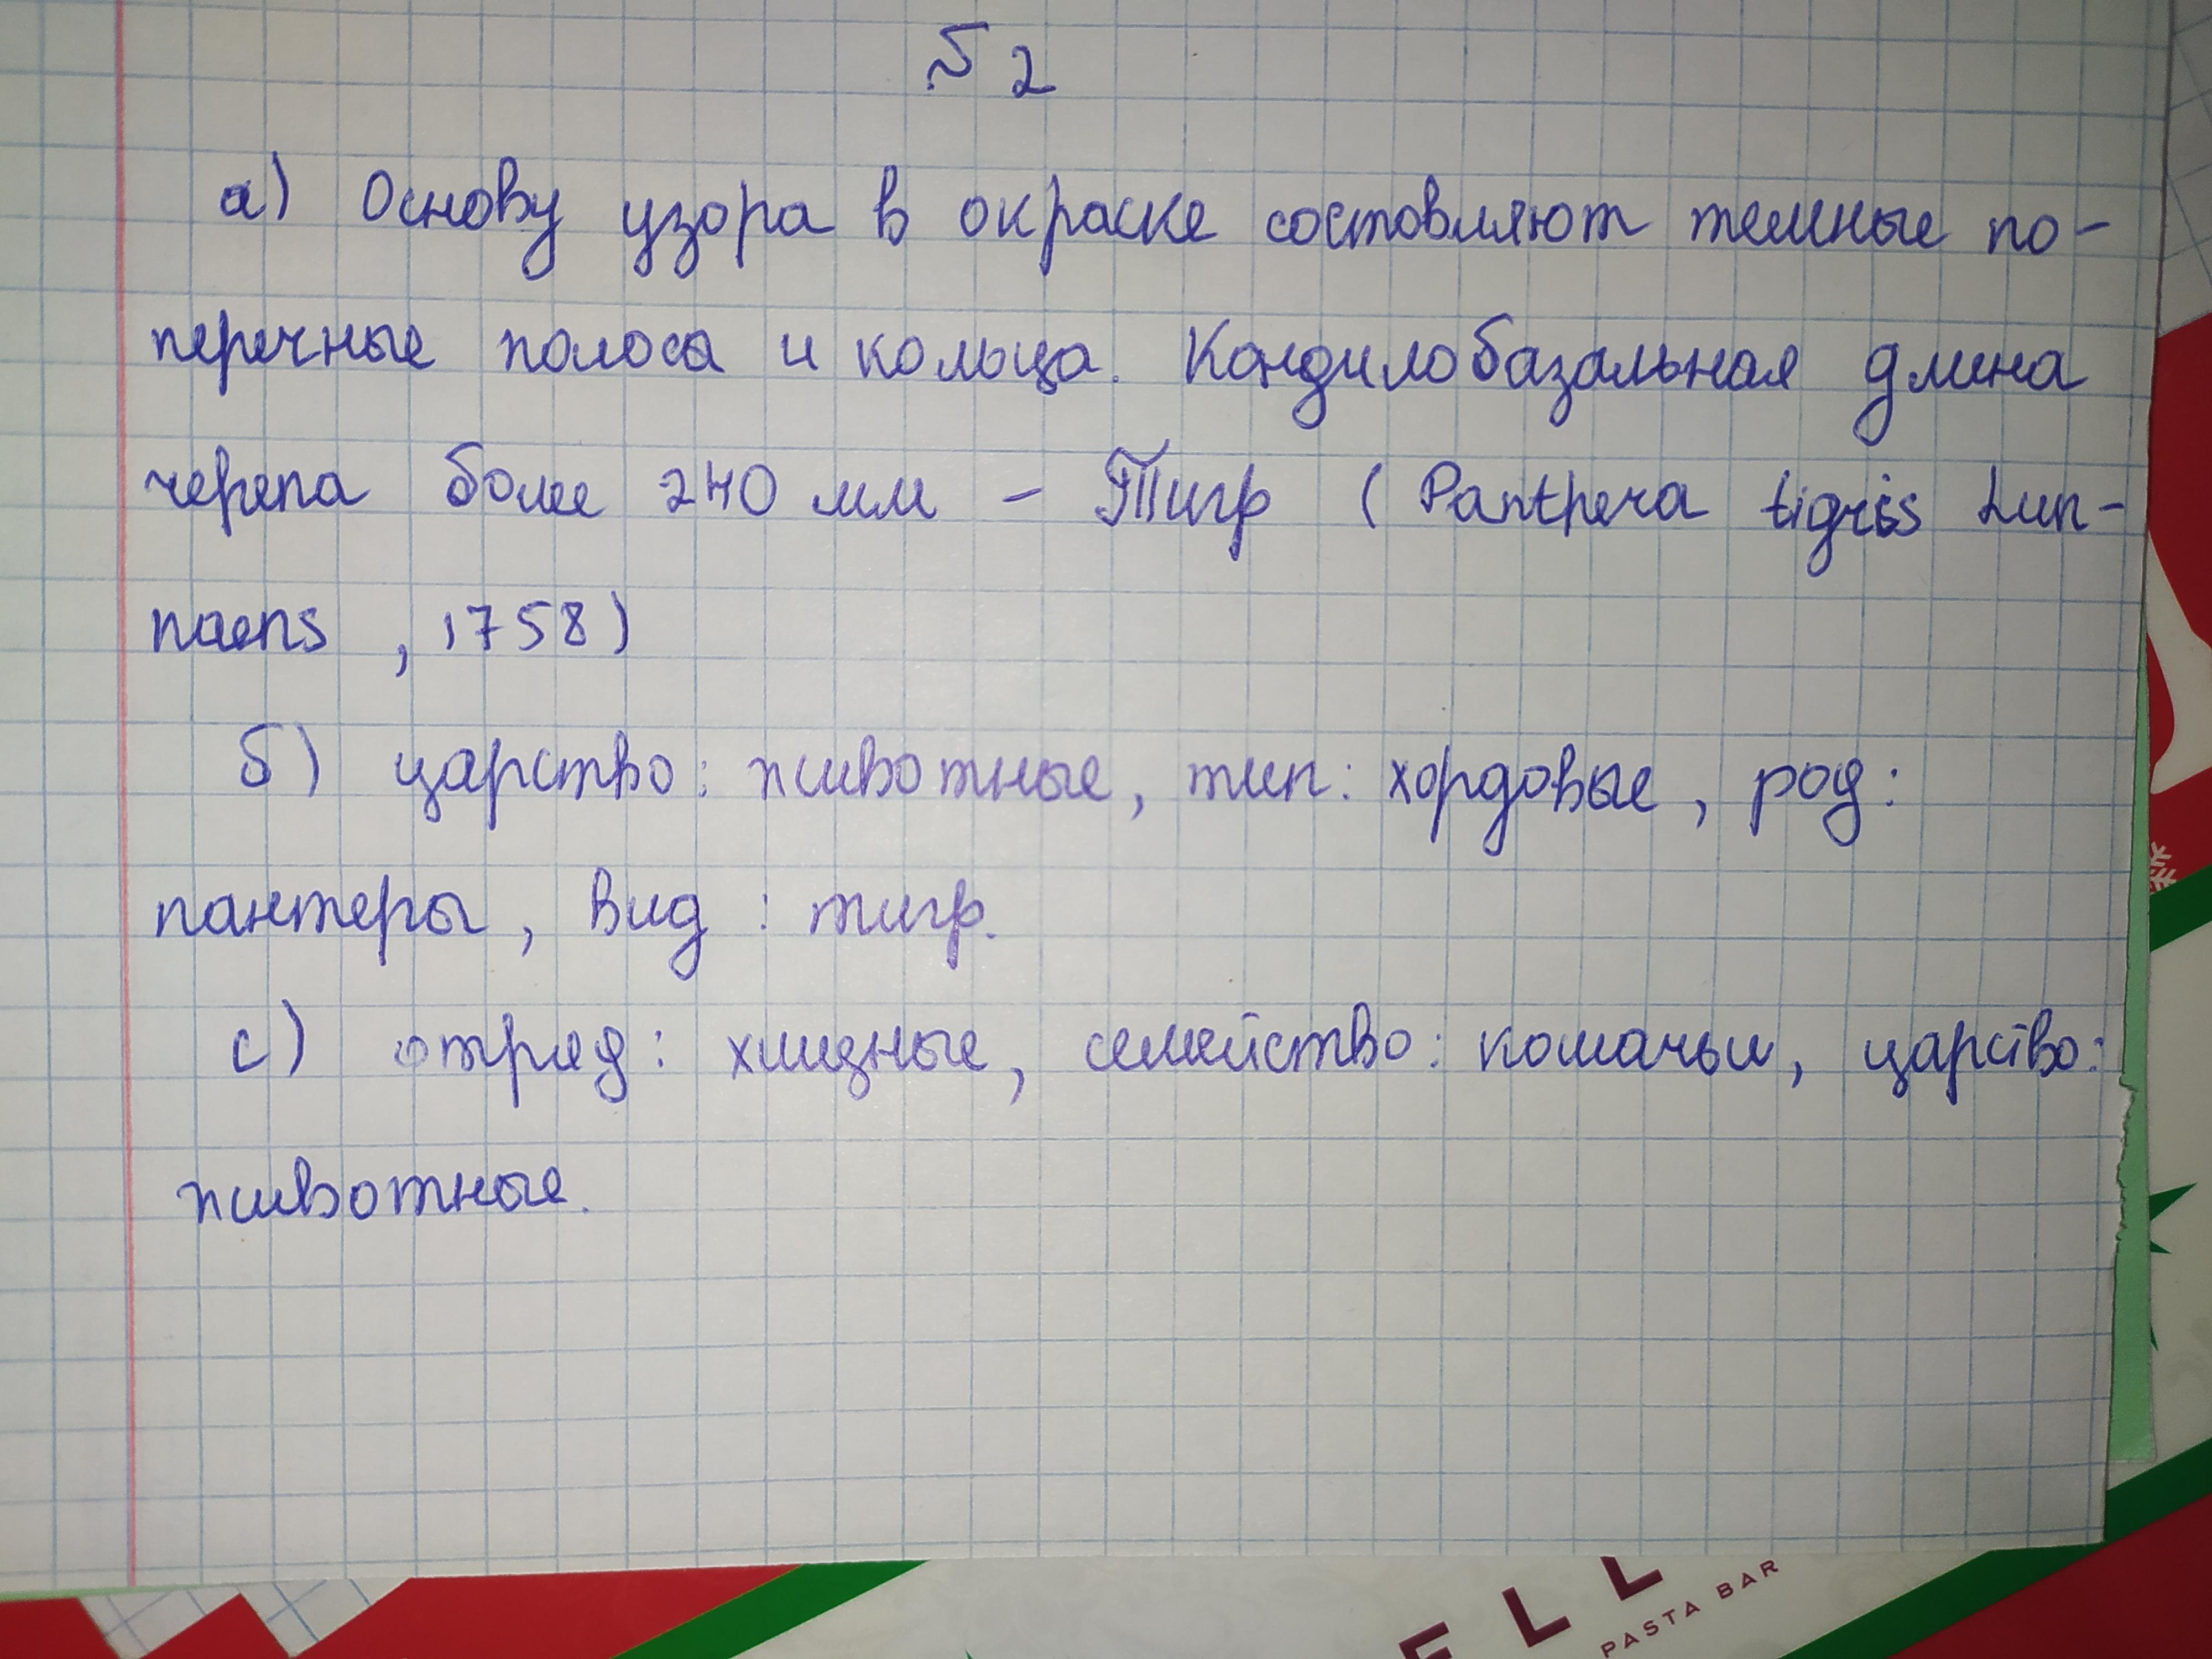 № 2
а) Основу узора в окраске состовляют темные по-
перечные полоса и кольца. Кондилобазальная длина
черепа более 240 мм - Тигр (Panthera tigris Lun-
naens , 1758)
б) царство: животные, тип: хордовые, род:
пантеры, вид : тигр.
с) отряд: хищные, семейство: кошачьи, царство:
животные.
ELL
PASTA BAR